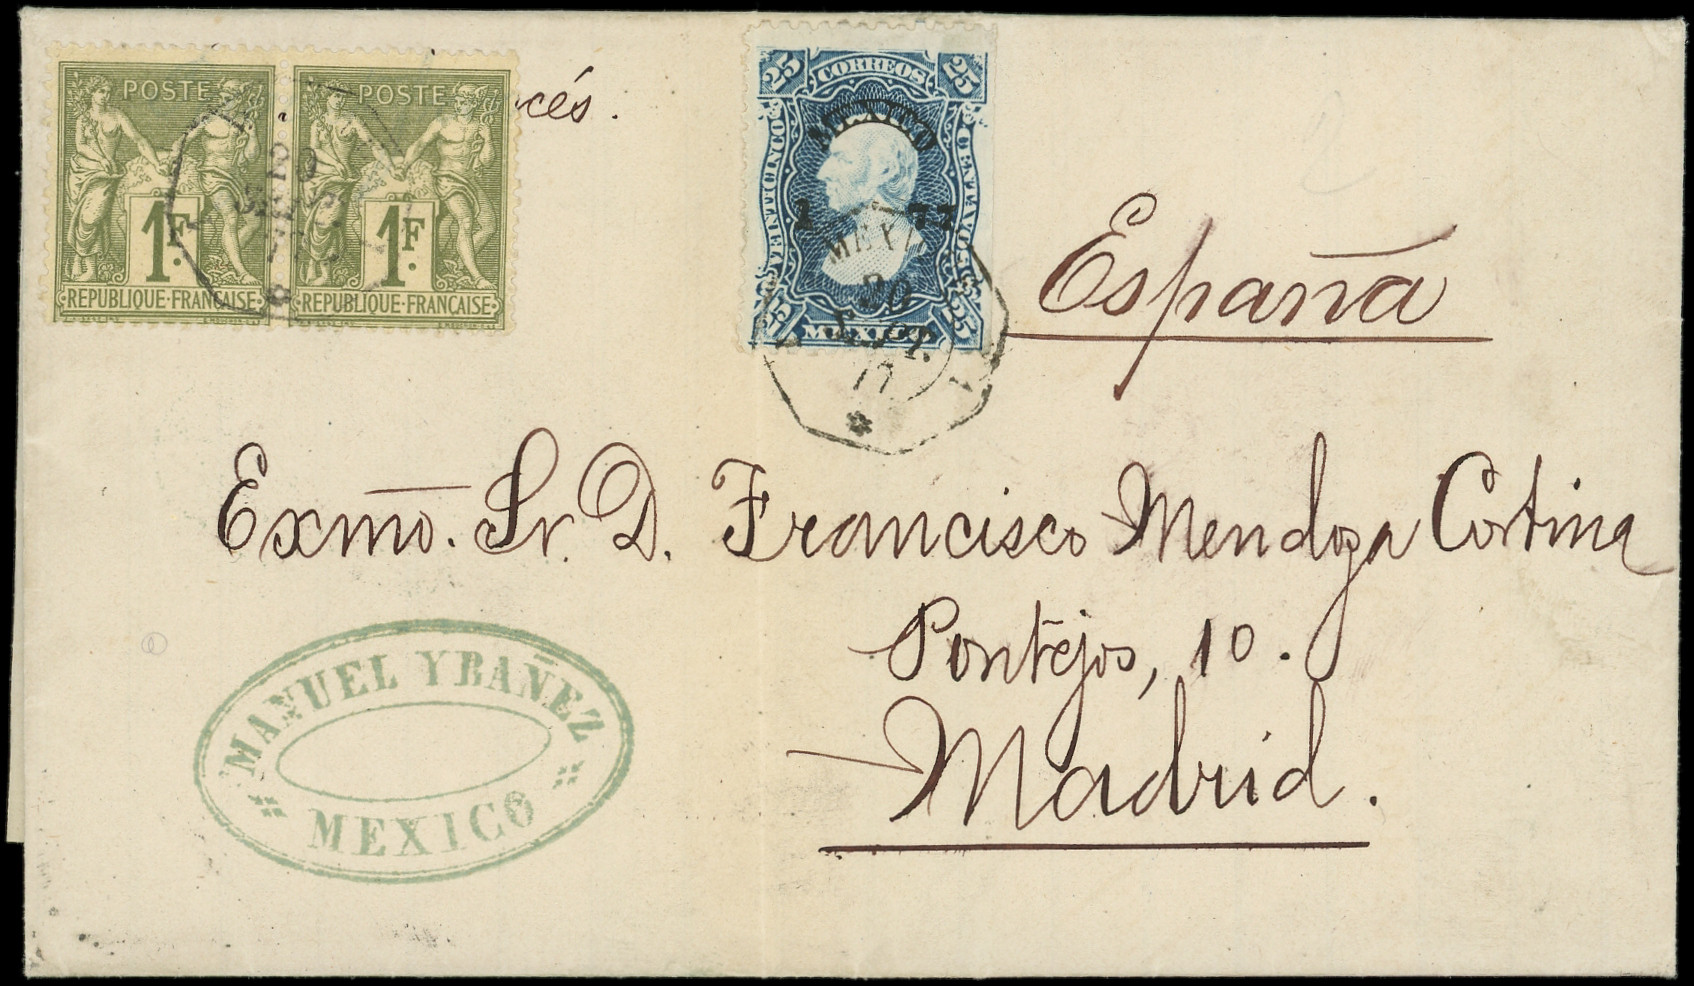 POSTE
1F.
REPUBLIQUE-FRANÇAISE
POSTE
1F.
REPUBLIQUE-FRANÇAISE
20
77
cés.
25 CORREOS 25
MEXICO
VEINTICINCO
CENTAVOS
1 77
25 MEXICO 25
MEXI
20
77
España
Exmo. Sr. D. Francisco Mendoza Cortina
Pontejos, 10.
Madrid.
MANUEL YBAÑEZ
MEXICO